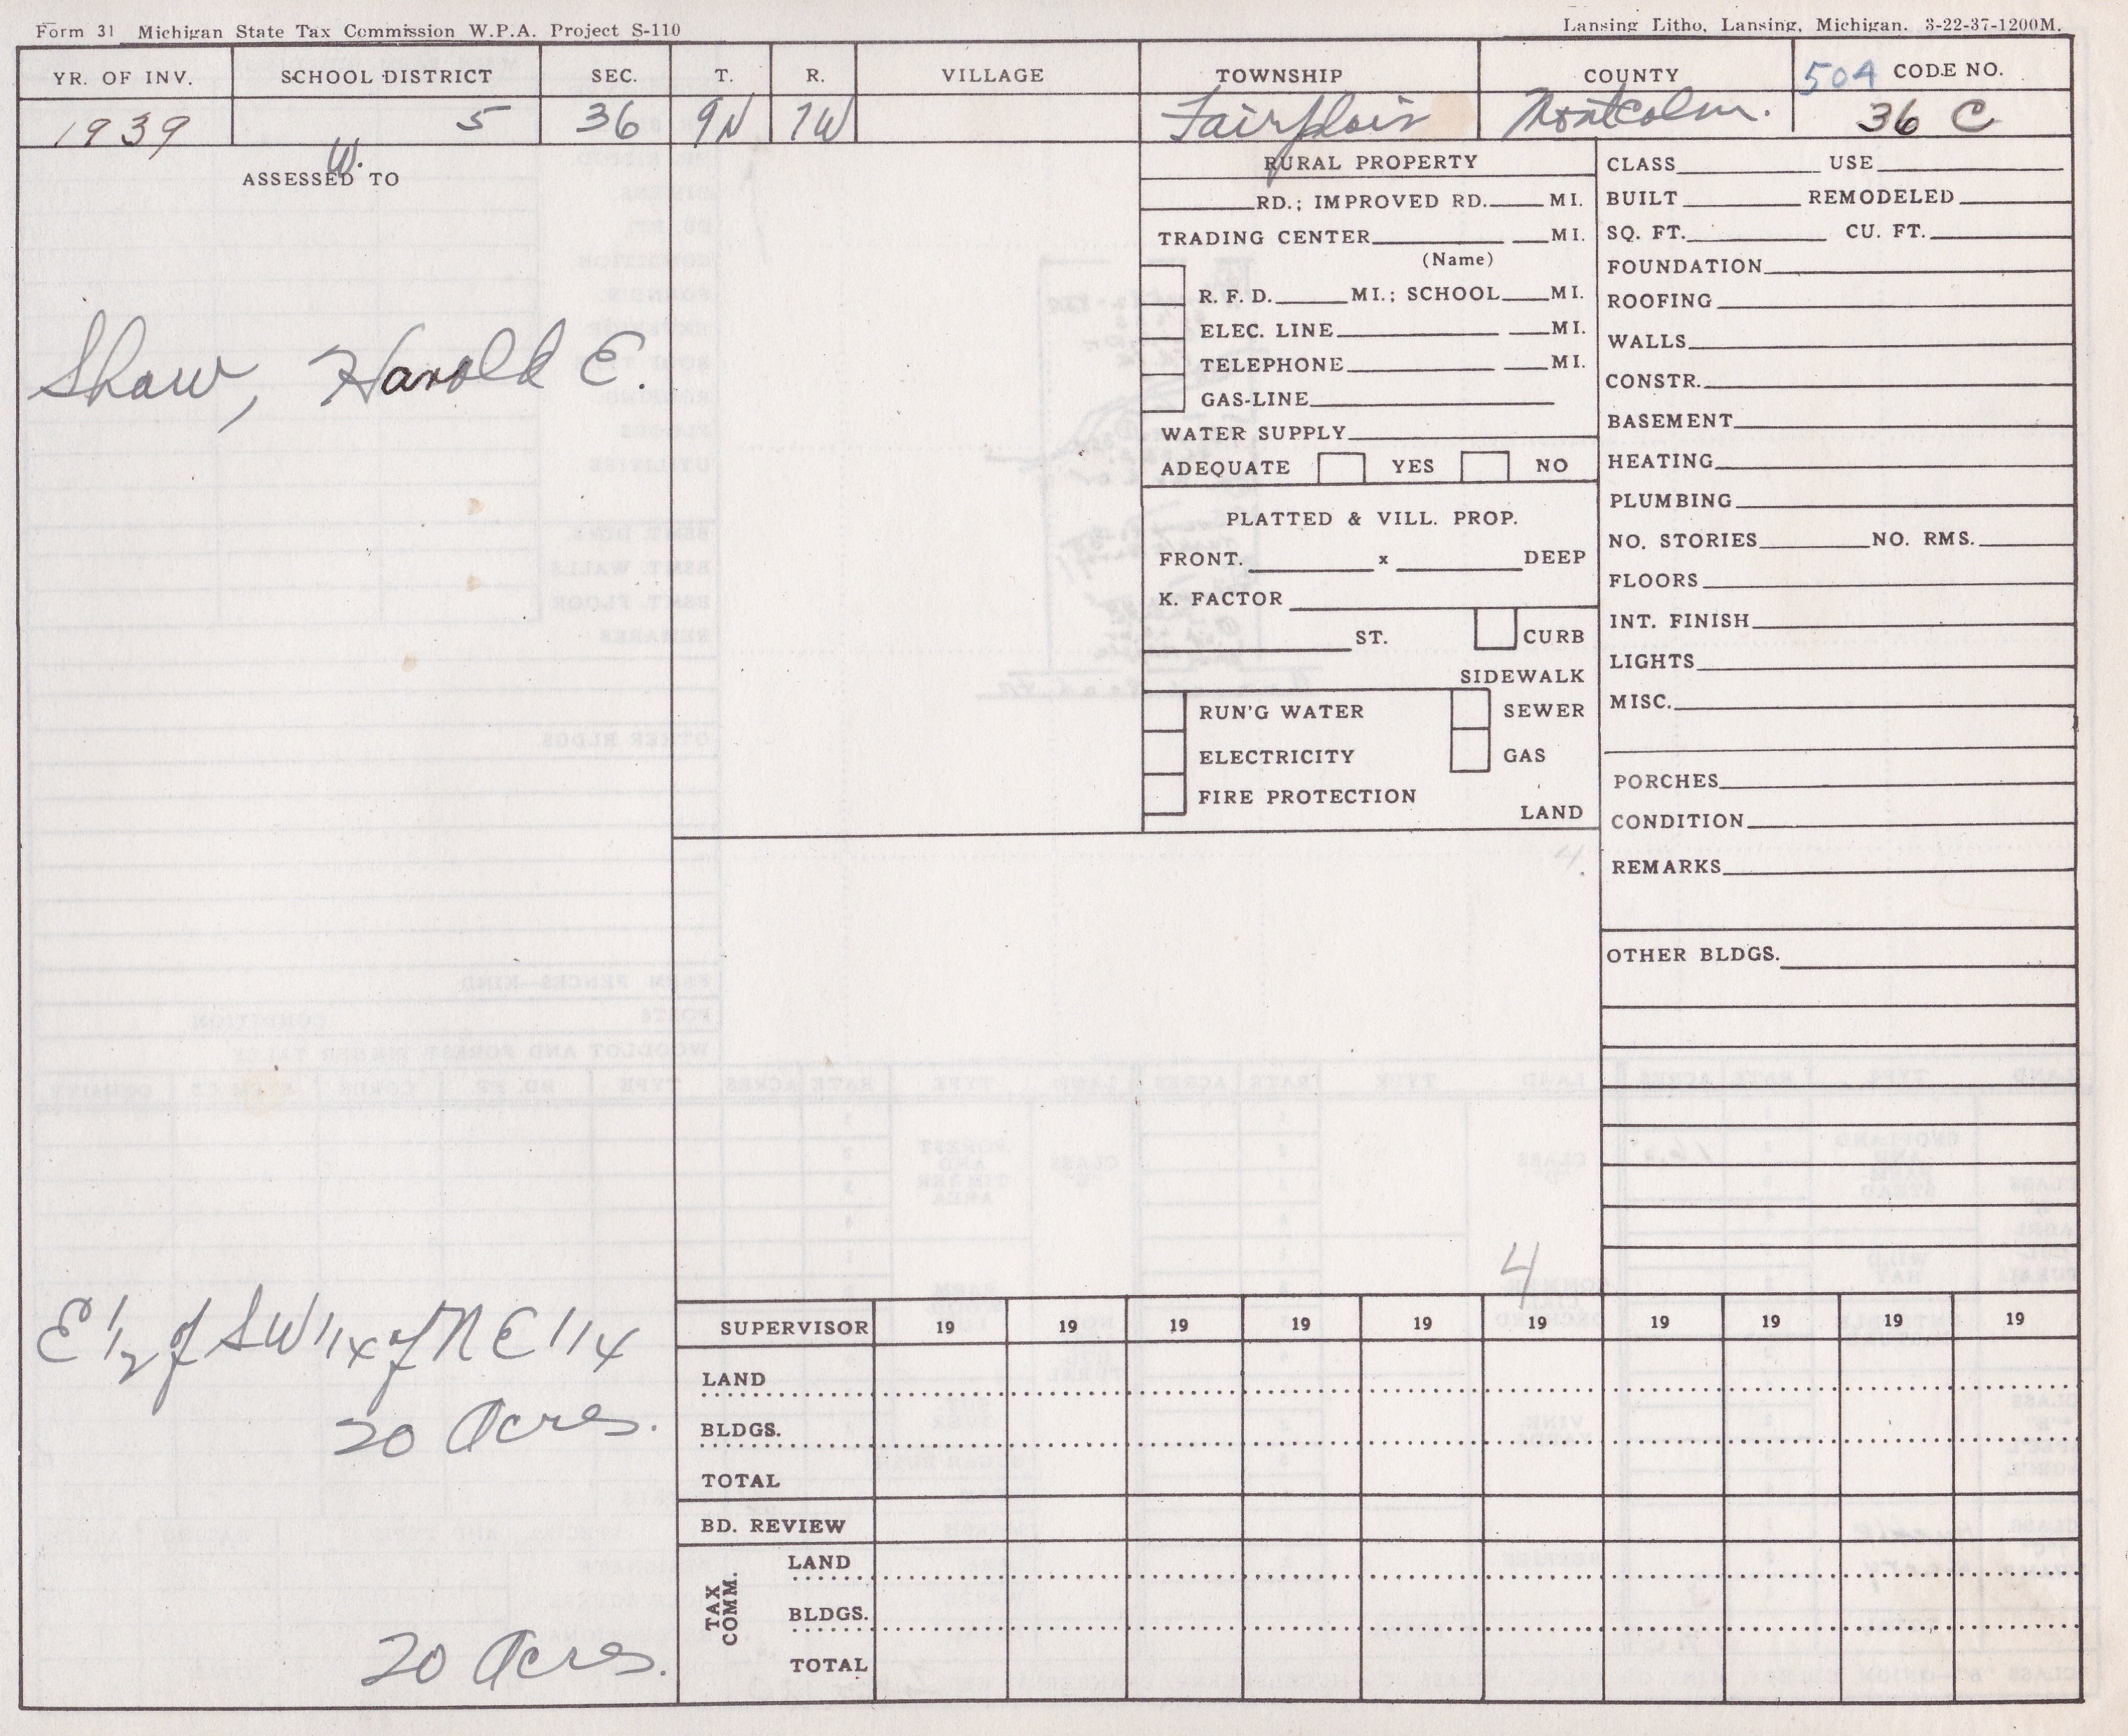 Form 31 Michigan State Tax Commission W.P.A. Project S-110
Lansing Litho, Lansing, Michigan. 3-22-37-1200M.
YR. OF INV. SCHOOL DISTRICT SEC. T. R. VILLAGE TOWNSHIP COUNTY 504 CODE NO.
1939 5 36 9N 7W Fairplain Montcalm. 36 C
W.
ASSESSED TO
Shaw, Harold E.
E 1/2 of SW 1/4 of NE 1/4
20 Acres.
20 Acres.
RURAL PROPERTY
RD.; IMPROVED RD. MI.
TRADING CENTER MI.
(Name)
R. F. D. MI.; SCHOOL MI.
ELEC. LINE MI.
TELEPHONE MI.
GAS-LINE
WATER SUPPLY
ADEQUATE YES NO
PLATTED & VILL. PROP.
FRONT. x DEEP
K. FACTOR
ST. CURB
SIDEWALK
RUN'G WATER SEWER
ELECTRICITY GAS
FIRE PROTECTION
LAND
4.
CLASS USE
BUILT REMODELED
SQ. FT. CU. FT.
FOUNDATION
ROOFING
WALLS
CONSTR.
BASEMENT
HEATING
PLUMBING
NO. STORIES NO. RMS.
FLOORS
INT. FINISH
LIGHTS
MISC.
PORCHES
CONDITION
REMARKS
OTHER BLDGS.
4
SUPERVISOR 19 19 19 19 19 19 19 19 19 19
LAND
BLDGS.
TOTAL
BD. REVIEW
TAX COMM.
LAND
BLDGS.
TOTAL